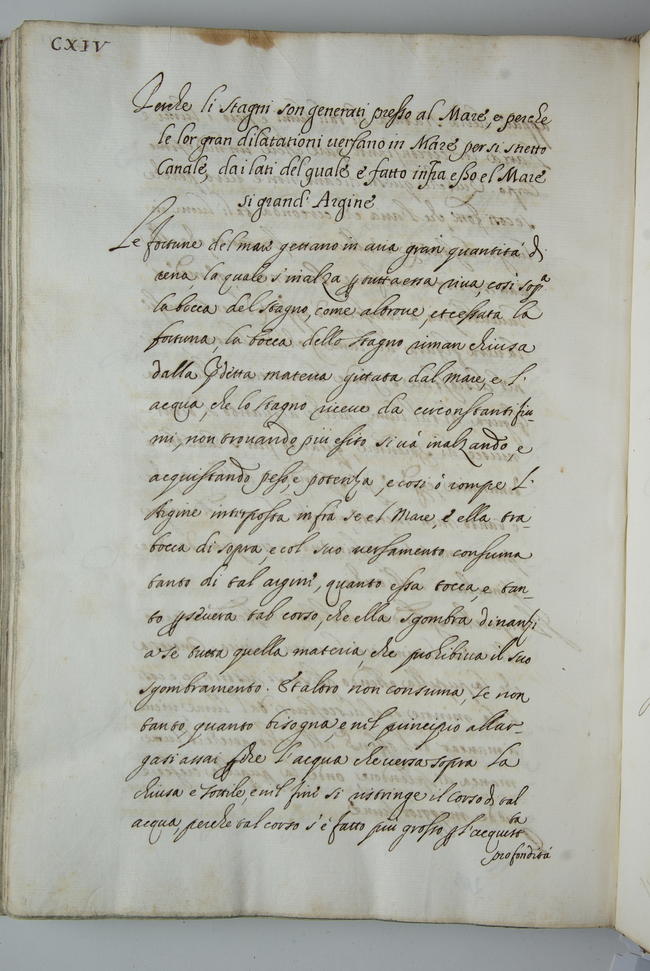 CXIV
Perche li stagni son generati presso al Mare, e perche
le lor gran dilatationi versano in Mare per si stretto
Canale, dai lati del quale è fatto infra esso el Mare
si grand' Argine
Le fortune del mare gettano in riva gran quantità di
rena, la quale s'inalza p tutta essa riva, così sopa
la bocca del stagno, come altrove, et cessata la
fortuna, la bocca dello stagno riman chiusa
dalla pditta materia gittata dal mare, e l'
acqua, che lo stagno riceve da circonstanti fiu-
mi, non trovando più esito si và inalzando, e
acquistando peso, e potenza, e così ò rompe l'
Argine interposta infrà se el Mare, è ella tra-
bocca di sopra, e col suo versamento consuma
tanto di tal argine, quanto essa tocca, e tan-
to psevera tal corso, che ella sgombra dinanzi
a se tutta quella materia, che prohibiva il suo
sgombramento. Et altro non consuma, se non
tanto, quanto bisogna, e nel principio allar-
gasi assai pche l'acqua che versa sopra la
chiusa è sottile, e nel fine si ristringe il corso di tal
acqua, perche tal corso s'è fatto più grosso p l'acquistta
profondità